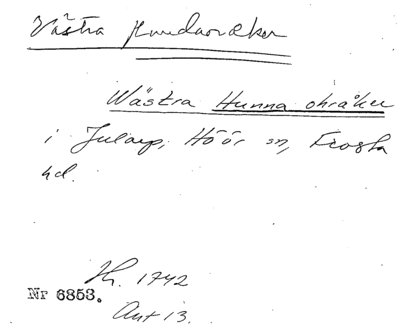 Västra Hundaråker
Wästra Hunna ohråker
i Jularp, Höör sn, Frosta
hd.
Th. 1742
Nr 6853.
Akt 13.